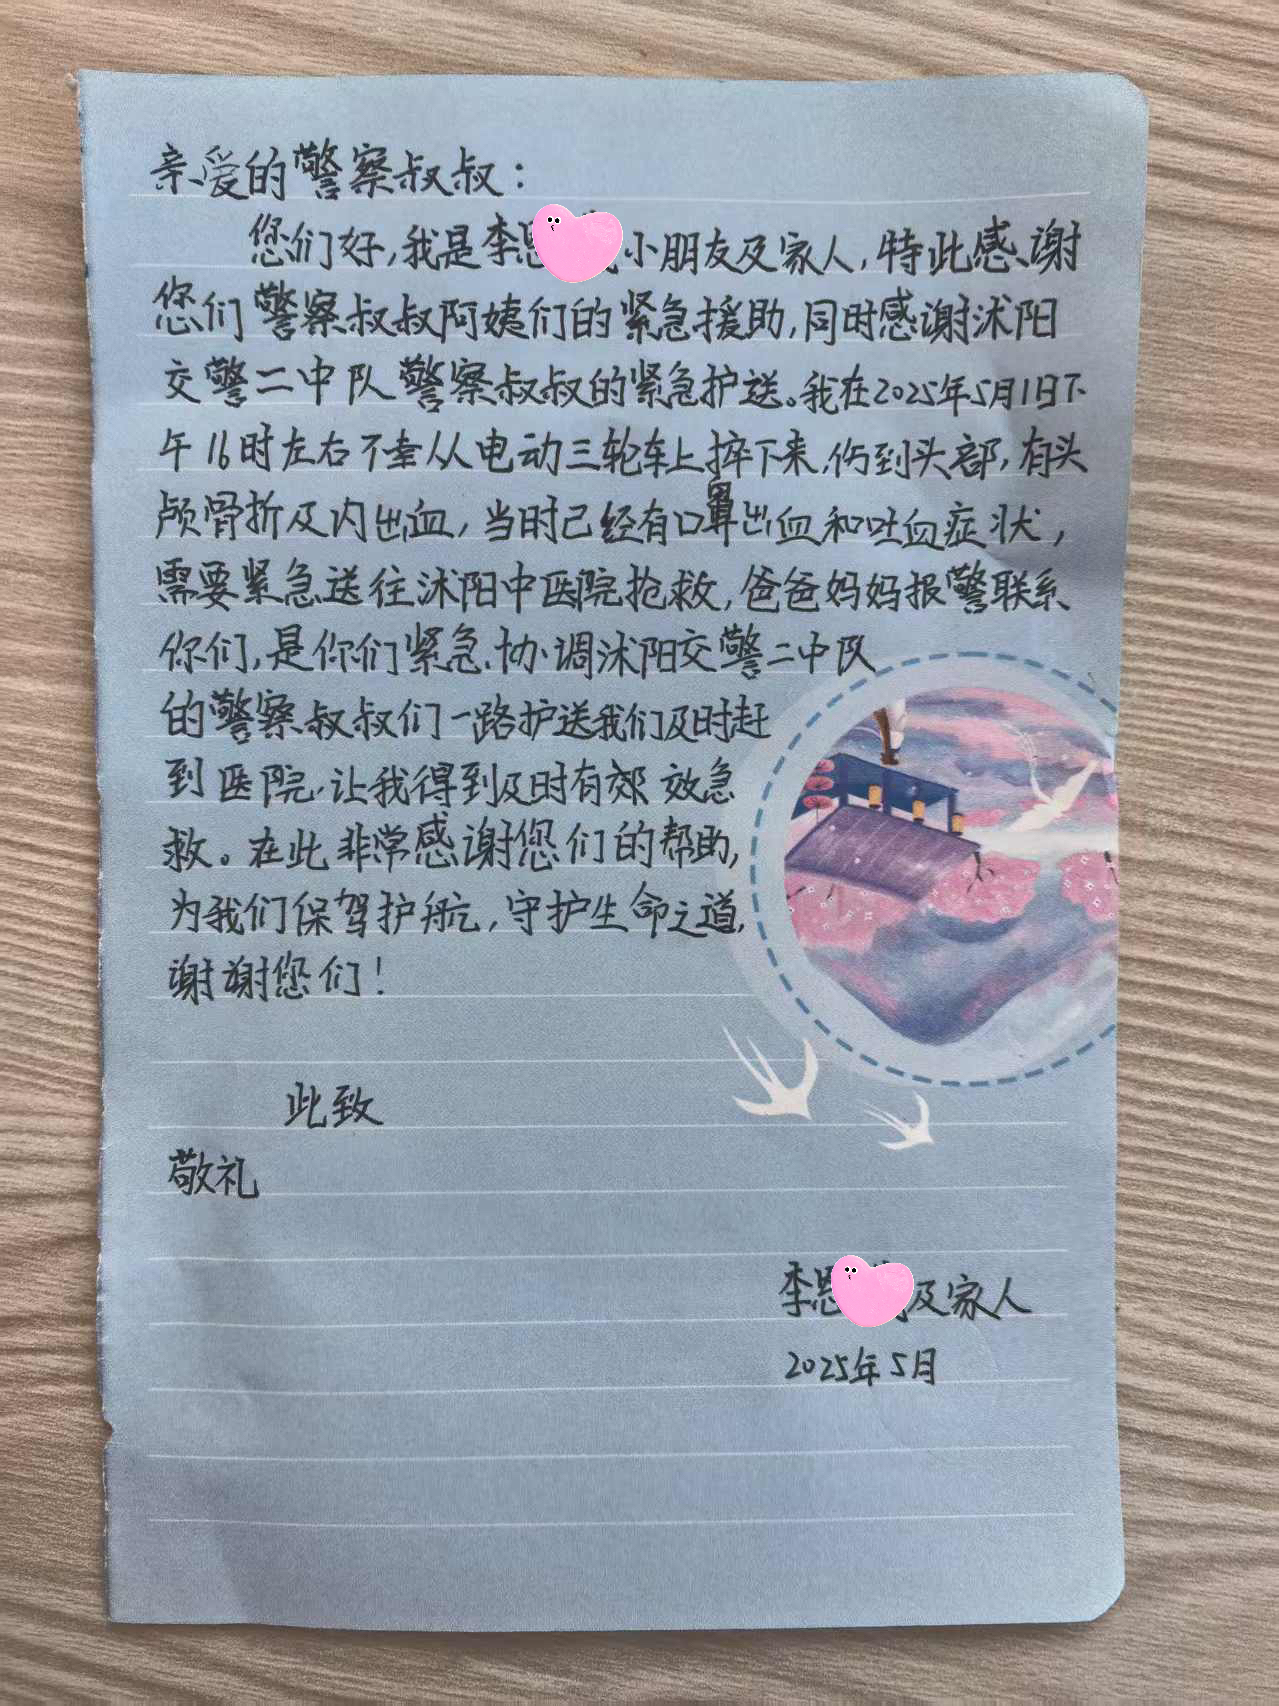 亲爱的警察叔叔：
您们好，我是李恩小朋友及家人，特此感谢
您们警察叔叔阿姨们的紧急援助，同时感谢沭阳
交警二中队警察叔叔的紧急护送。我在2025年5月1日下
午16时左右不幸从电动三轮车上摔下来，伤到头部，有头
颅骨折及内出血，当时已经有口鼻出血和吐血症状，
需要紧急送往沭阳中医院抢救，爸爸妈妈报警联系
你们，是你们紧急协调沭阳交警二中队
的警察叔叔们一路护送我们及时赶
到医院，让我得到及时有效急
救。在此非常感谢您们的帮助，
为我们保驾护航，守护生命之道，
谢谢您们！
此致
敬礼
李恩及家人
2025年5月